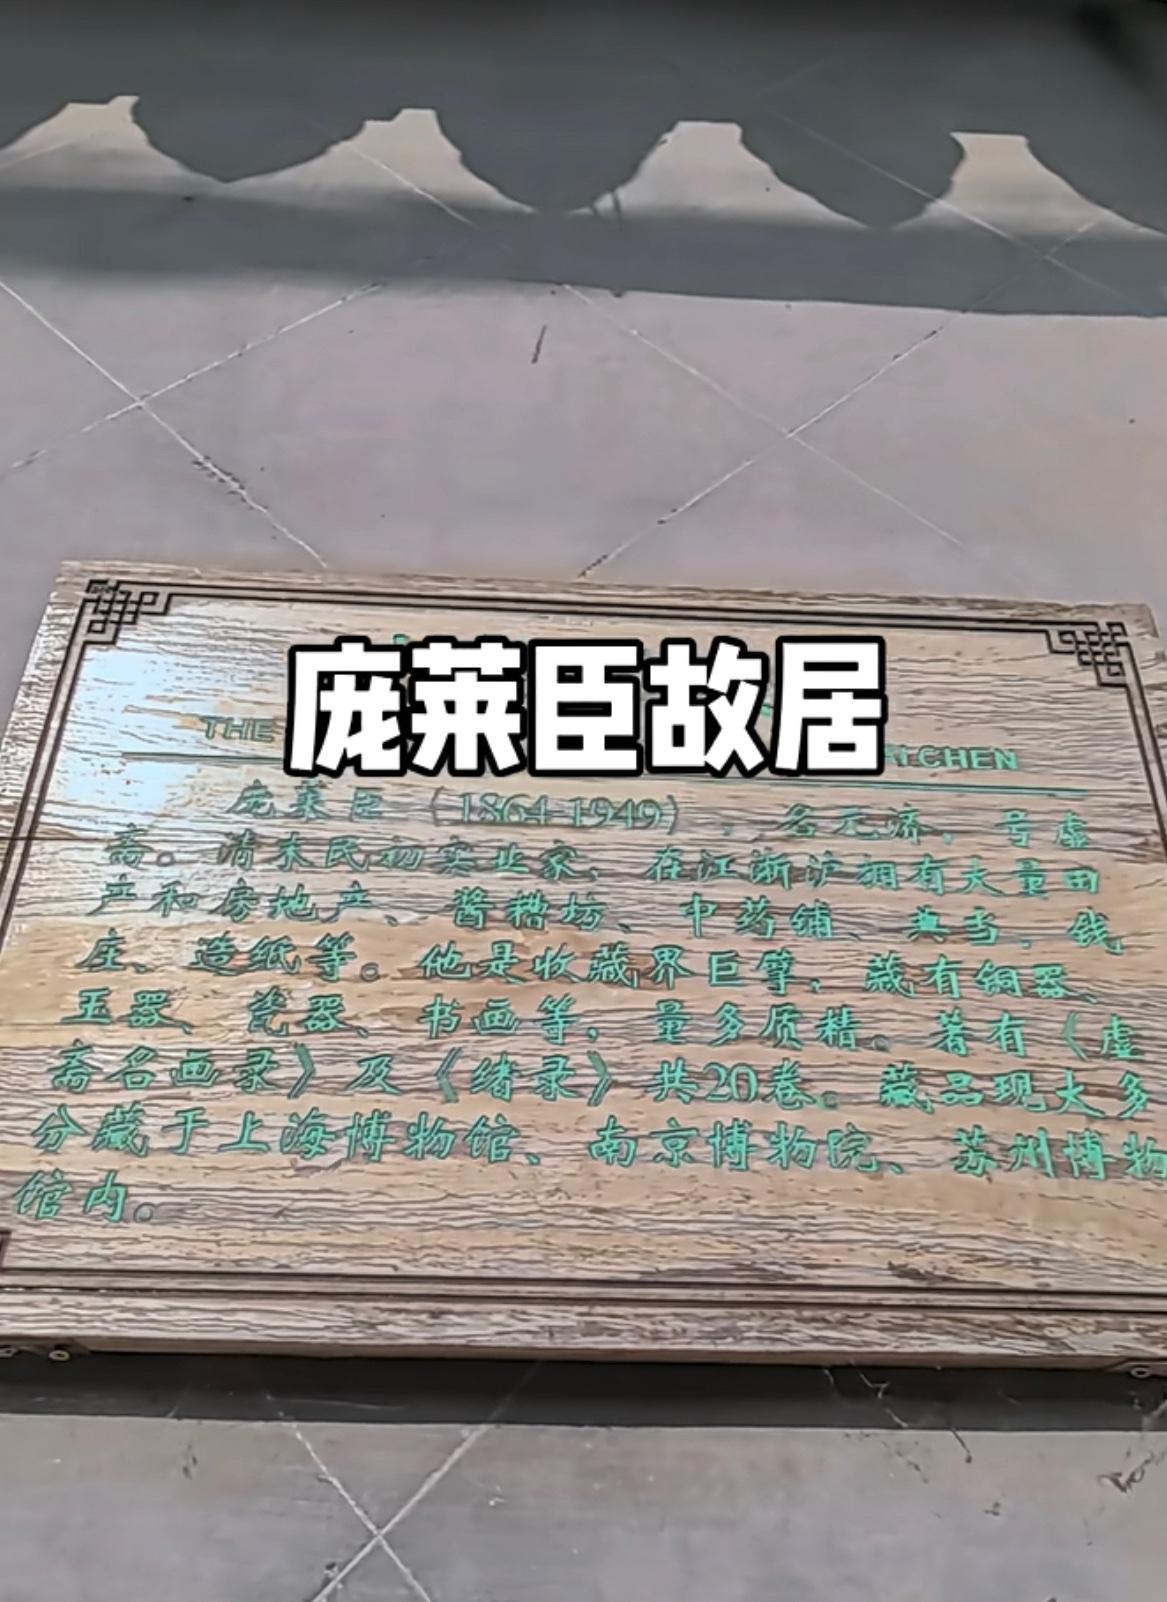 庞莱臣故居
THE
AI CHEN
庞莱臣(1864-1949),名元济,号虚
斋。清末民初实业家,在江浙沪拥有大量田
产和房地产、酱糟坊、中药铺、典当、钱
庄、造纸等。他是收藏界巨擘,藏有铜器、
玉器、瓷器、书画等,量多质精。著有《虚
斋名画录》及《绪录》共20卷。藏品现大多
分藏于上海博物馆、南京博物院、苏州博物
馆内。